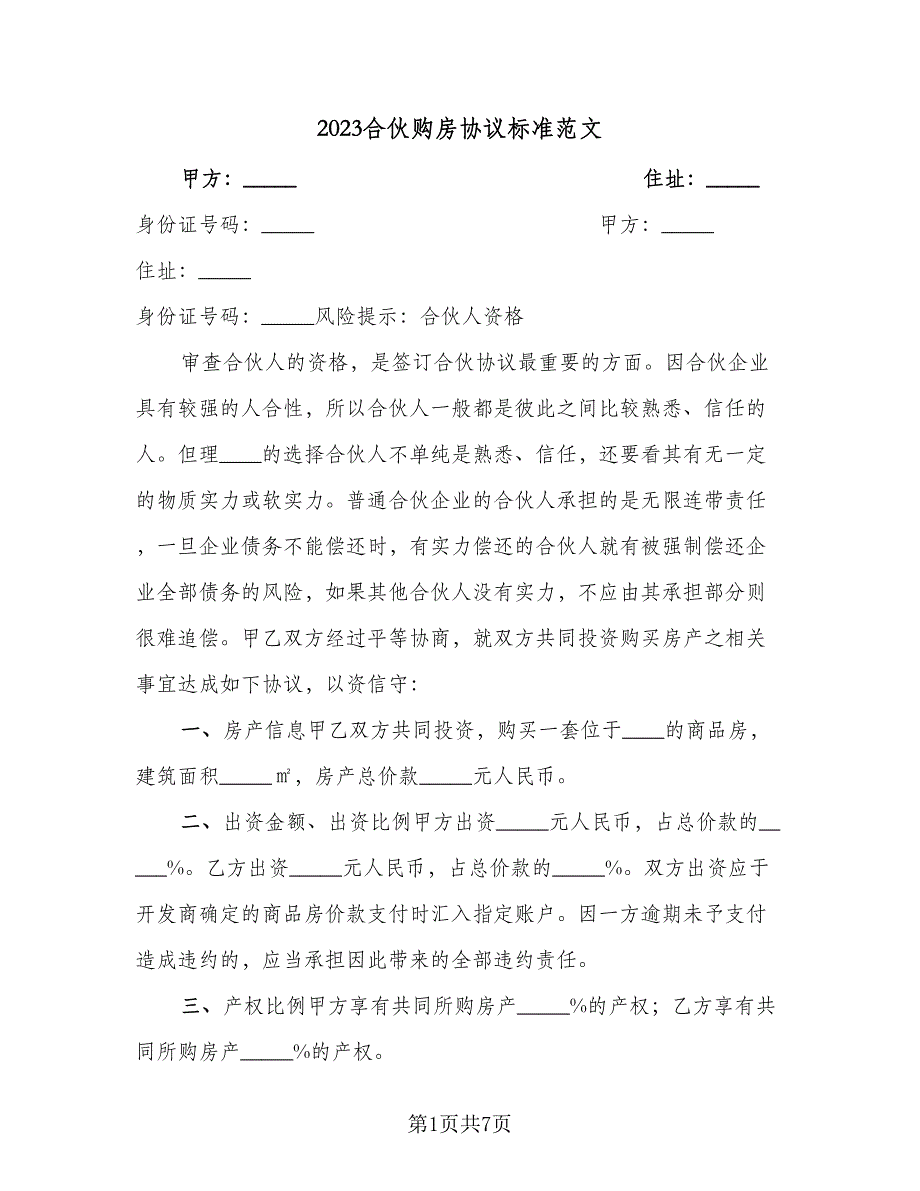 2023合伙购房协议标准范文
甲方：_____ 住址：_____
身份证号码：_____ 甲方：_____
住址：_____
身份证号码：_____风险提示：合伙人资格
审查合伙人的资格，是签订合伙协议最重要的方面。因合伙企业
具有较强的人合性，所以合伙人一般都是彼此之间比较熟悉、信任的
人。但理____的选择合伙人不单纯是熟悉、信任，还要看其有无一定
的物质实力或软实力。普通合伙企业的合伙人承担的是无限连带责任
，一旦企业债务不能偿还时，有实力偿还的合伙人就有被强制偿还企
业全部债务的风险，如果其他合伙人没有实力，不应由其承担部分则
很难追偿。甲乙双方经过平等协商，就双方共同投资购买房产之相关
事宜达成如下协议，以资信守：
一、房产信息甲乙双方共同投资，购买一套位于____的商品房，
建筑面积_____㎡，房产总价款_____元人民币。
二、出资金额、出资比例甲方出资_____元人民币，占总价款的__
___%。乙方出资_____元人民币，占总价款的_____%。双方出资应于
开发商确定的商品房价款支付时汇入指定账户。因一方逾期未予支付
造成违约的，应当承担因此带来的全部违约责任。
三、产权比例甲方享有共同所购房产_____%的产权；乙方享有共
同所购房产_____%的产权。
第1页共7页